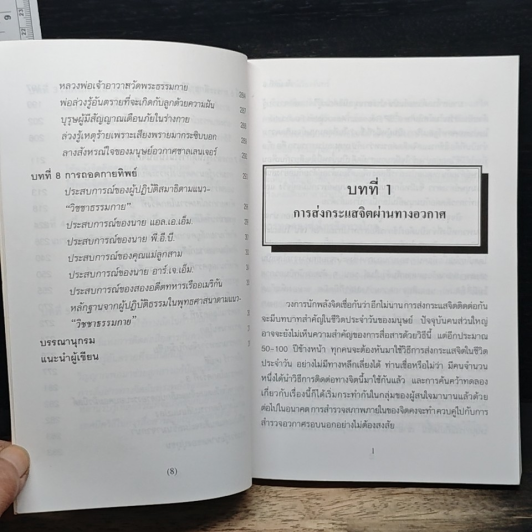 หลวงพ่อเจ้าอาวาสวัดพระธรรมกาย
พ่อล่วงรู้อันตรายที่จะเกิดกับลูกด้วยความฝัน
บุรุษผู้มีสัญญาณเตือนภัยในร่างกาย
ล่วงรู้เหตุร้ายเพราะเสียงพรายมากระซิบบอก
ลางสังหรณ์ใจของมนุษย์อวกาศชาลเลนเจอร์
บทที่ 8 การถอดกายทิพย์
ประสบการณ์ของผู้ปฏิบัติสมาธิตามแนว-
"วิชชาธรรมกาย"
ประสบการณ์ของนาย แอล.เอ.เอ็ม.
ประสบการณ์ของนาย พี.อี.บี.
ประสบการณ์ของคุณแม่ลูกสาม
ประสบการณ์ของนาย อาร์.เจ.เอ็ม.
ประสบการณ์ของสองอดีตทหารเรืออเมริกัน
หลักฐานจากผู้ปฏิบัติธรรมในพุทธศาสนาตามแนว-
"วิชชาธรรมกาย"
บรรณานุกรม
แนะนำผู้เขียน
(8)
บทที่ 1
การส่งกระแสจิตผ่านทางอวกาศ
วงการนักพลังจิตเชื่อกันว่าอีกไม่นานการส่งกระแสจิตติดต่อกัน
จะมีบทบาทสำคัญในชีวิตประจำวันของมนุษย์ ปัจจุบันคนส่วนใหญ่
อาจจะยังไม่เห็นความสำคัญของการสื่อสารด้วยวิธีนี้ แต่อีกประมาณ
50-100 ปีข้างหน้า ทุกคนจะต้องหันมาใช้วิธีการส่งกระแสจิตในชีวิต
ประจำวัน อย่างไม่มีทางหลีกเลี่ยงได้ ท่านเชื่อหรือไม่ว่า มีคนจำนวน
หนึ่งได้นำวิธีการติดต่อทางจิตนี้มาใช้กันแล้ว และการค้นคว้าทดลอง
เกี่ยวกับเรื่องนี้ก็ได้เริ่มกระทำกันในกลุ่มของผู้สนใจมานานแล้วด้วย
ต่อไปในอนาคต การสำรวจสภาพภายในของจิตคงจะทำควบคู่ไปกับการ
สำรวจอวกาศรอบนอกอย่างไม่ต้องสงสัย
1